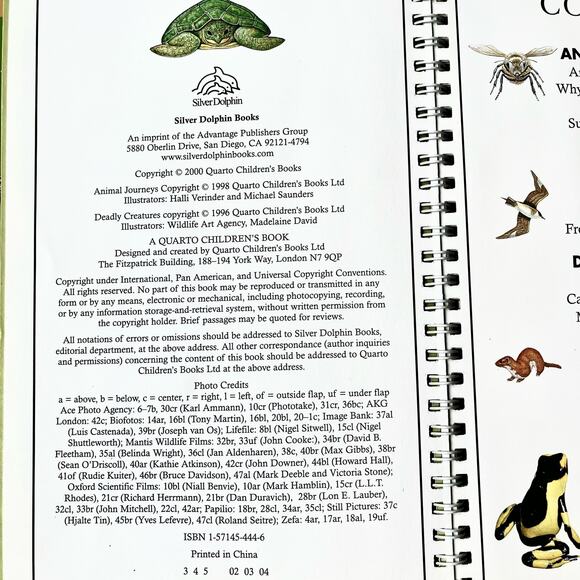 SilverDolphin
Silver Dolphin Books
An imprint of the Advantage Publishers Group
5880 Oberlin Drive, San Diego, CA 92121-4794
www.silverdolphinbooks.com
Copyright © 2000 Quarto Children's Books
Animal Journeys Copyright © 1998 Quarto Children's Books Ltd
Illustrators: Halli Verinder and Michael Saunders
Deadly Creatures copyright © 1996 Quarto Children's Books Ltd
Illustrators: Wildlife Art Agency, Madelaine David
A QUARTO CHILDREN'S BOOK
Designed and created by Quarto Children's Books Ltd
The Fitzpatrick Building, 188–194 York Way, London N7 9QP
Copyright under International, Pan American, and Universal Copyright Conventions.
All rights reserved. No part of this book may be reproduced or transmitted in any
form or by any means, electronic or mechanical, including photocopying, recording,
or by any information storage-and-retrieval system, without written permission from
the copyright holder. Brief passages may be quoted for reviews.
All notations of errors or omissions should be addressed to Silver Dolphin Books,
editorial department, at the above address. All other correspondence (author inquiries
and permissions) concerning the content of this book should be addressed to Quarto
Children's Books Ltd at the above address.
Photo Credits
a = above, b = below, c = center, r = right, l = left, of = outside flap, uf = under flap
Ace Photo Agency: 6–7b, 30cr (Karl Ammann), 10cr (Phototake), 31cr, 36bc; AKG
London: 42c; Biofotos: 14ar, 16bl (Tony Martin), 16bl, 20bl, 20–1c; Image Bank: 37al
(Luis Castenada), 39br (Joseph van Os); Lifefile: 8bl (Nigel Sitwell), 15cl (Nigel
Shuttleworth); Mantis Wildlife Films: 32br, 33uf (John Cooke:), 34br (David B.
Fleetham), 35al (Belinda Wright), 36cl (Jan Aldenharen), 38c, 40br (Max Gibbs), 38br
(Sean O'Driscoll), 40ar (Kathie Atkinson), 42cr (John Downer), 44bl (Howard Hall),
41of (Rudie Kuiter), 46br (Bruce Davidson), 47al (Mark Deeble and Victoria Stone);
Oxford Scientific Films: 10bl (Niall Benvie), 10ar (Mark Hamblin), 15cr (L.L.T.
Rhodes), 21cr (Richard Herrmann), 21br (Dan Duravich), 28br (Lon E. Lauber),
32cl, 33br (John Mitchell), 22cl, 42ar; Papilio: 18br, 28cl, 34ar, 35cl; Still Pictures: 37c
(Hjalte Tin), 45br (Yves Lefevre), 47cl (Roland Seitre); Zefa: 4ar, 17ar, 18al, 19uf.
ISBN 1-57145-444-6
Printed in China
3 4 5 02 03 04
CO
AN
Why
Su
Fr
D
Ca